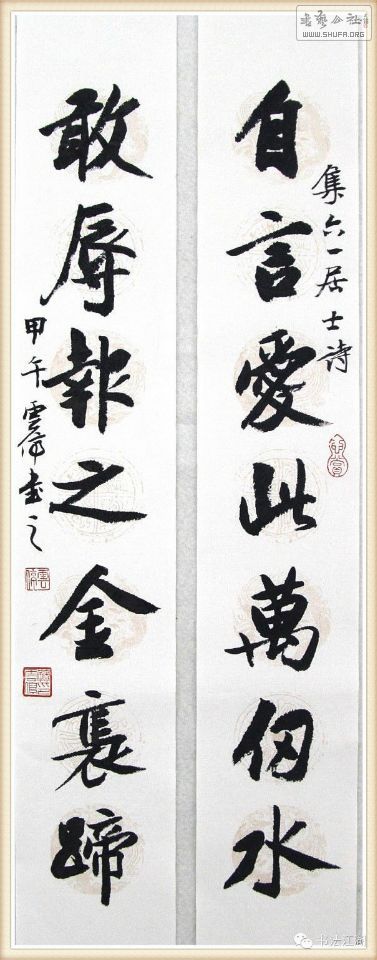 集六一居士詩
自言愛此萬仞水
敢辱報之金褭蹄
甲午雲偉書之
書藝公社
WWW.SHUFA.ORG
书法江湖